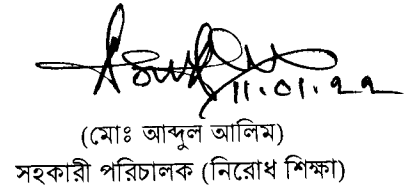 11.01.22
(মোঃ আব্দুল আলিম)
সহকারী পরিচালক (নিরোধ শিক্ষা)